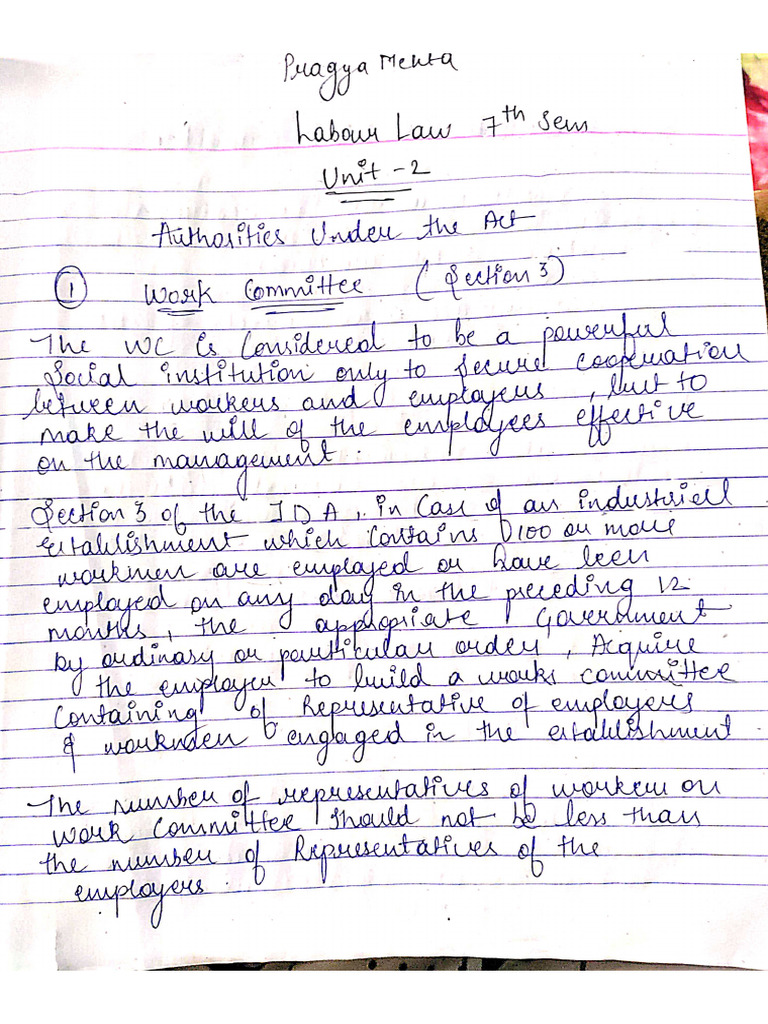 Pragya Mehta
Labour Law 7th Sem
Unit - 2
Authorities Under the Act
① Work Committee (Section 3)
The WC is Considered to be a powerful
Social institution only to secure cooperation
between workers and employers, but to
make the will of the employees effective
on the management.
Section 3 of the IDA, in case of an industriell
establishment which contains 100 or more
workmen are employed or have been
employed on any day in the preceding 12
months, the appropriate Government
by ordinary or particular order, Acquire
the employer to build a works committee
Containing of Representative of employers
& workmen engaged in the establishment
The number of representatives of workem on
work Committee should not be less than
the number of Representatives of the
employers.